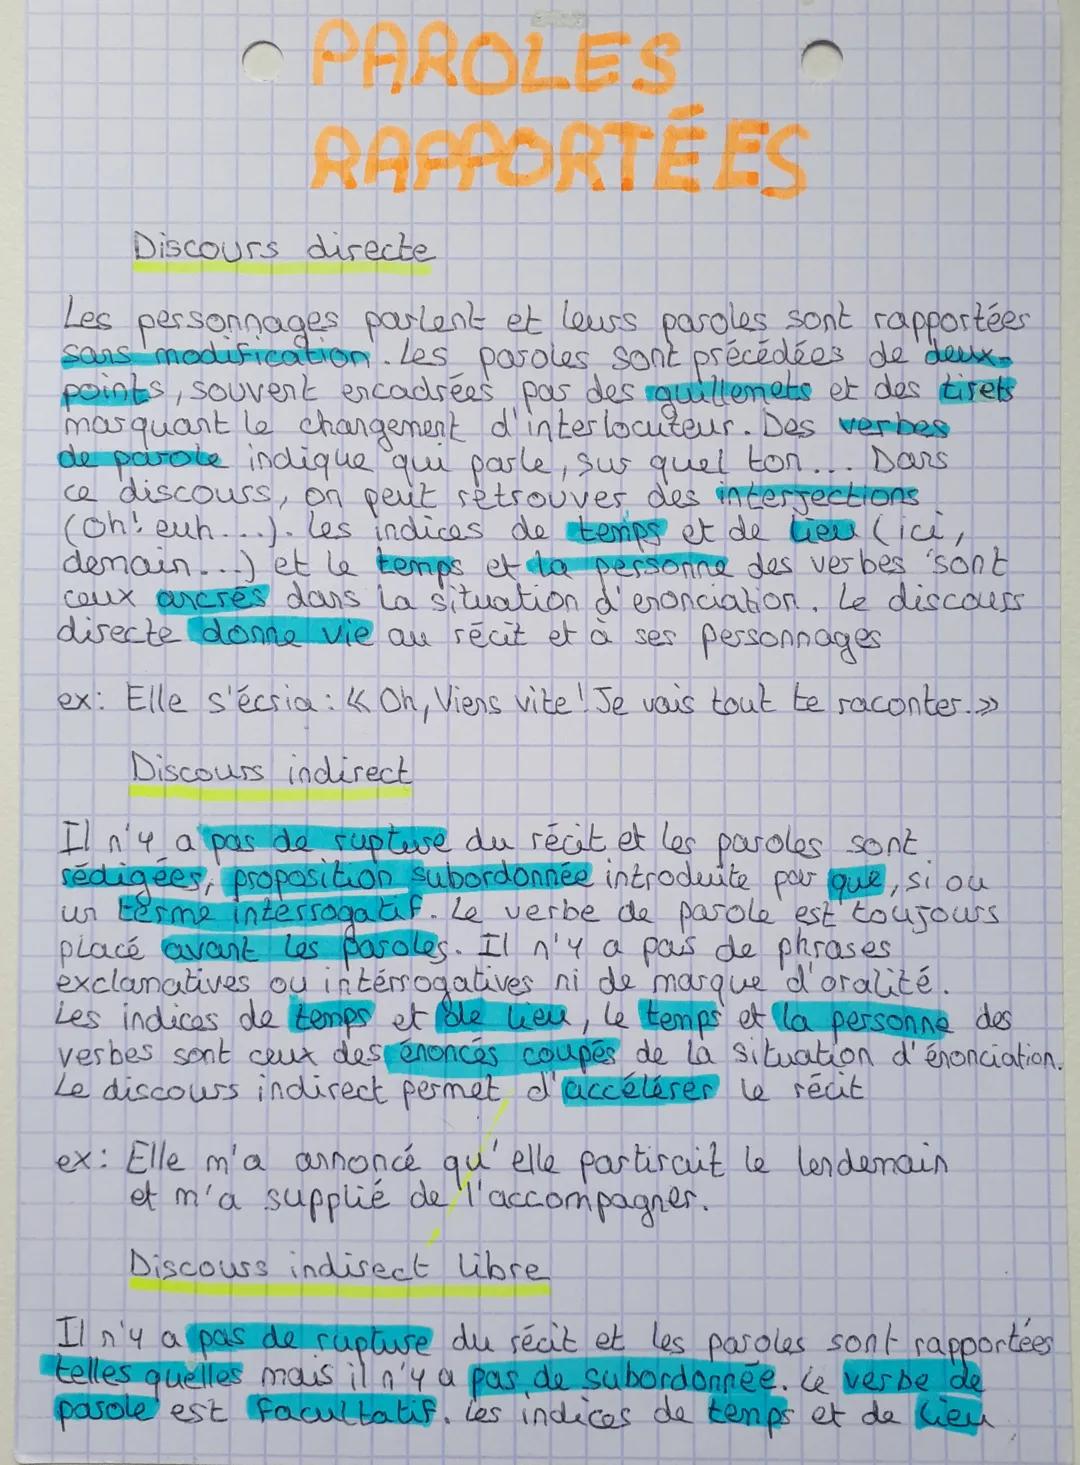 PAROLES
RAPPORTÉES
Discours directe
Les personnages parlent et leurs paroles sont rapportées
sans modification. Les paroles sont précédées de deux-
points, souvent encadrées par des guillemets et des tirets
marquant le changement d'interlocuteur. Des verbes
de parole indique qui parle, sur quel ton... Dans
ce discours, on peut retrouver des interjections
(oh! euh...). Les indices de temps et de lieu (ici,
demain...) et le temps et la personne des verbes sont
ceux ancrés dans la situation d'énonciation. Le discours
directe donne vie au récit et à ses personnages
ex: Elle s'écria : « Oh, Viens vite ! Je vais tout te raconter. »
Discours indirect
Il n'y a pas de rupture du récit et les paroles sont
rédigées, proposition subordonnée introduite par que, si ou
un terme interrogatif. Le verbe de parole est toujours
placé avant les paroles. Il n'y a pas de phrases
exclamatives ou intérrogatives ni de marque d'oralité.
Les indices de temps et de lieu, le temps et la personne des
verbes sont ceux des énoncés coupés de la situation d'énonciation.
Le discours indirect permet d'accélérer le récit
ex: Elle m'a annoncé qu'elle partirait le lendemain
et m'a supplié de l'accompagner.
Discours indirect libre
Il n'y a pas de rupture du récit et les paroles sont rapportées
telles quelles mais il n'y a pas de subordonnée. Le verbe de
parole est facultatif. Les indices de temps et de lieu